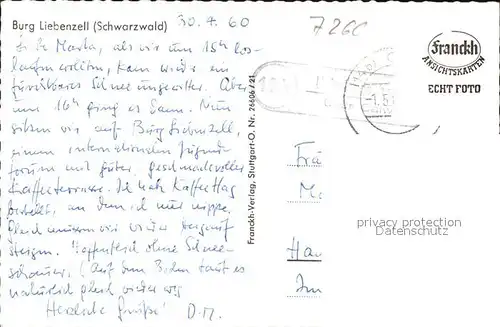 Burg Liebenzell (Schwarzwald)
30.4.60
726C
Liebe Marta, als wir um 15h los-
laufen wollten, kam wieder ein
fürchtbares Schneeungewitter. Aber
um 16h ging es dann. Nun
sitzen wir auf Burg Liebenzell,
einem internationalen Jugend-
forum mit guter, geschmackvoller
Kaffeeterrasse. Ich habe Kaffee Hag
bestellt, an dem ich nur nippe.
Gleich müssen wir wieder bergauf
steigen. Hoffentlich ohne Schnee-
schauer. (Auf dem Boden taut es
natürlich gleich wieder weg
Herzliche Grüße! D.M.
Franckh-Verlag, Stuttgart-O. Nr. 26606/21
Franckh
ANSICHTSKARTEN
ECHT FOTO
Frä
Ha
privacy protection
Datenschutz